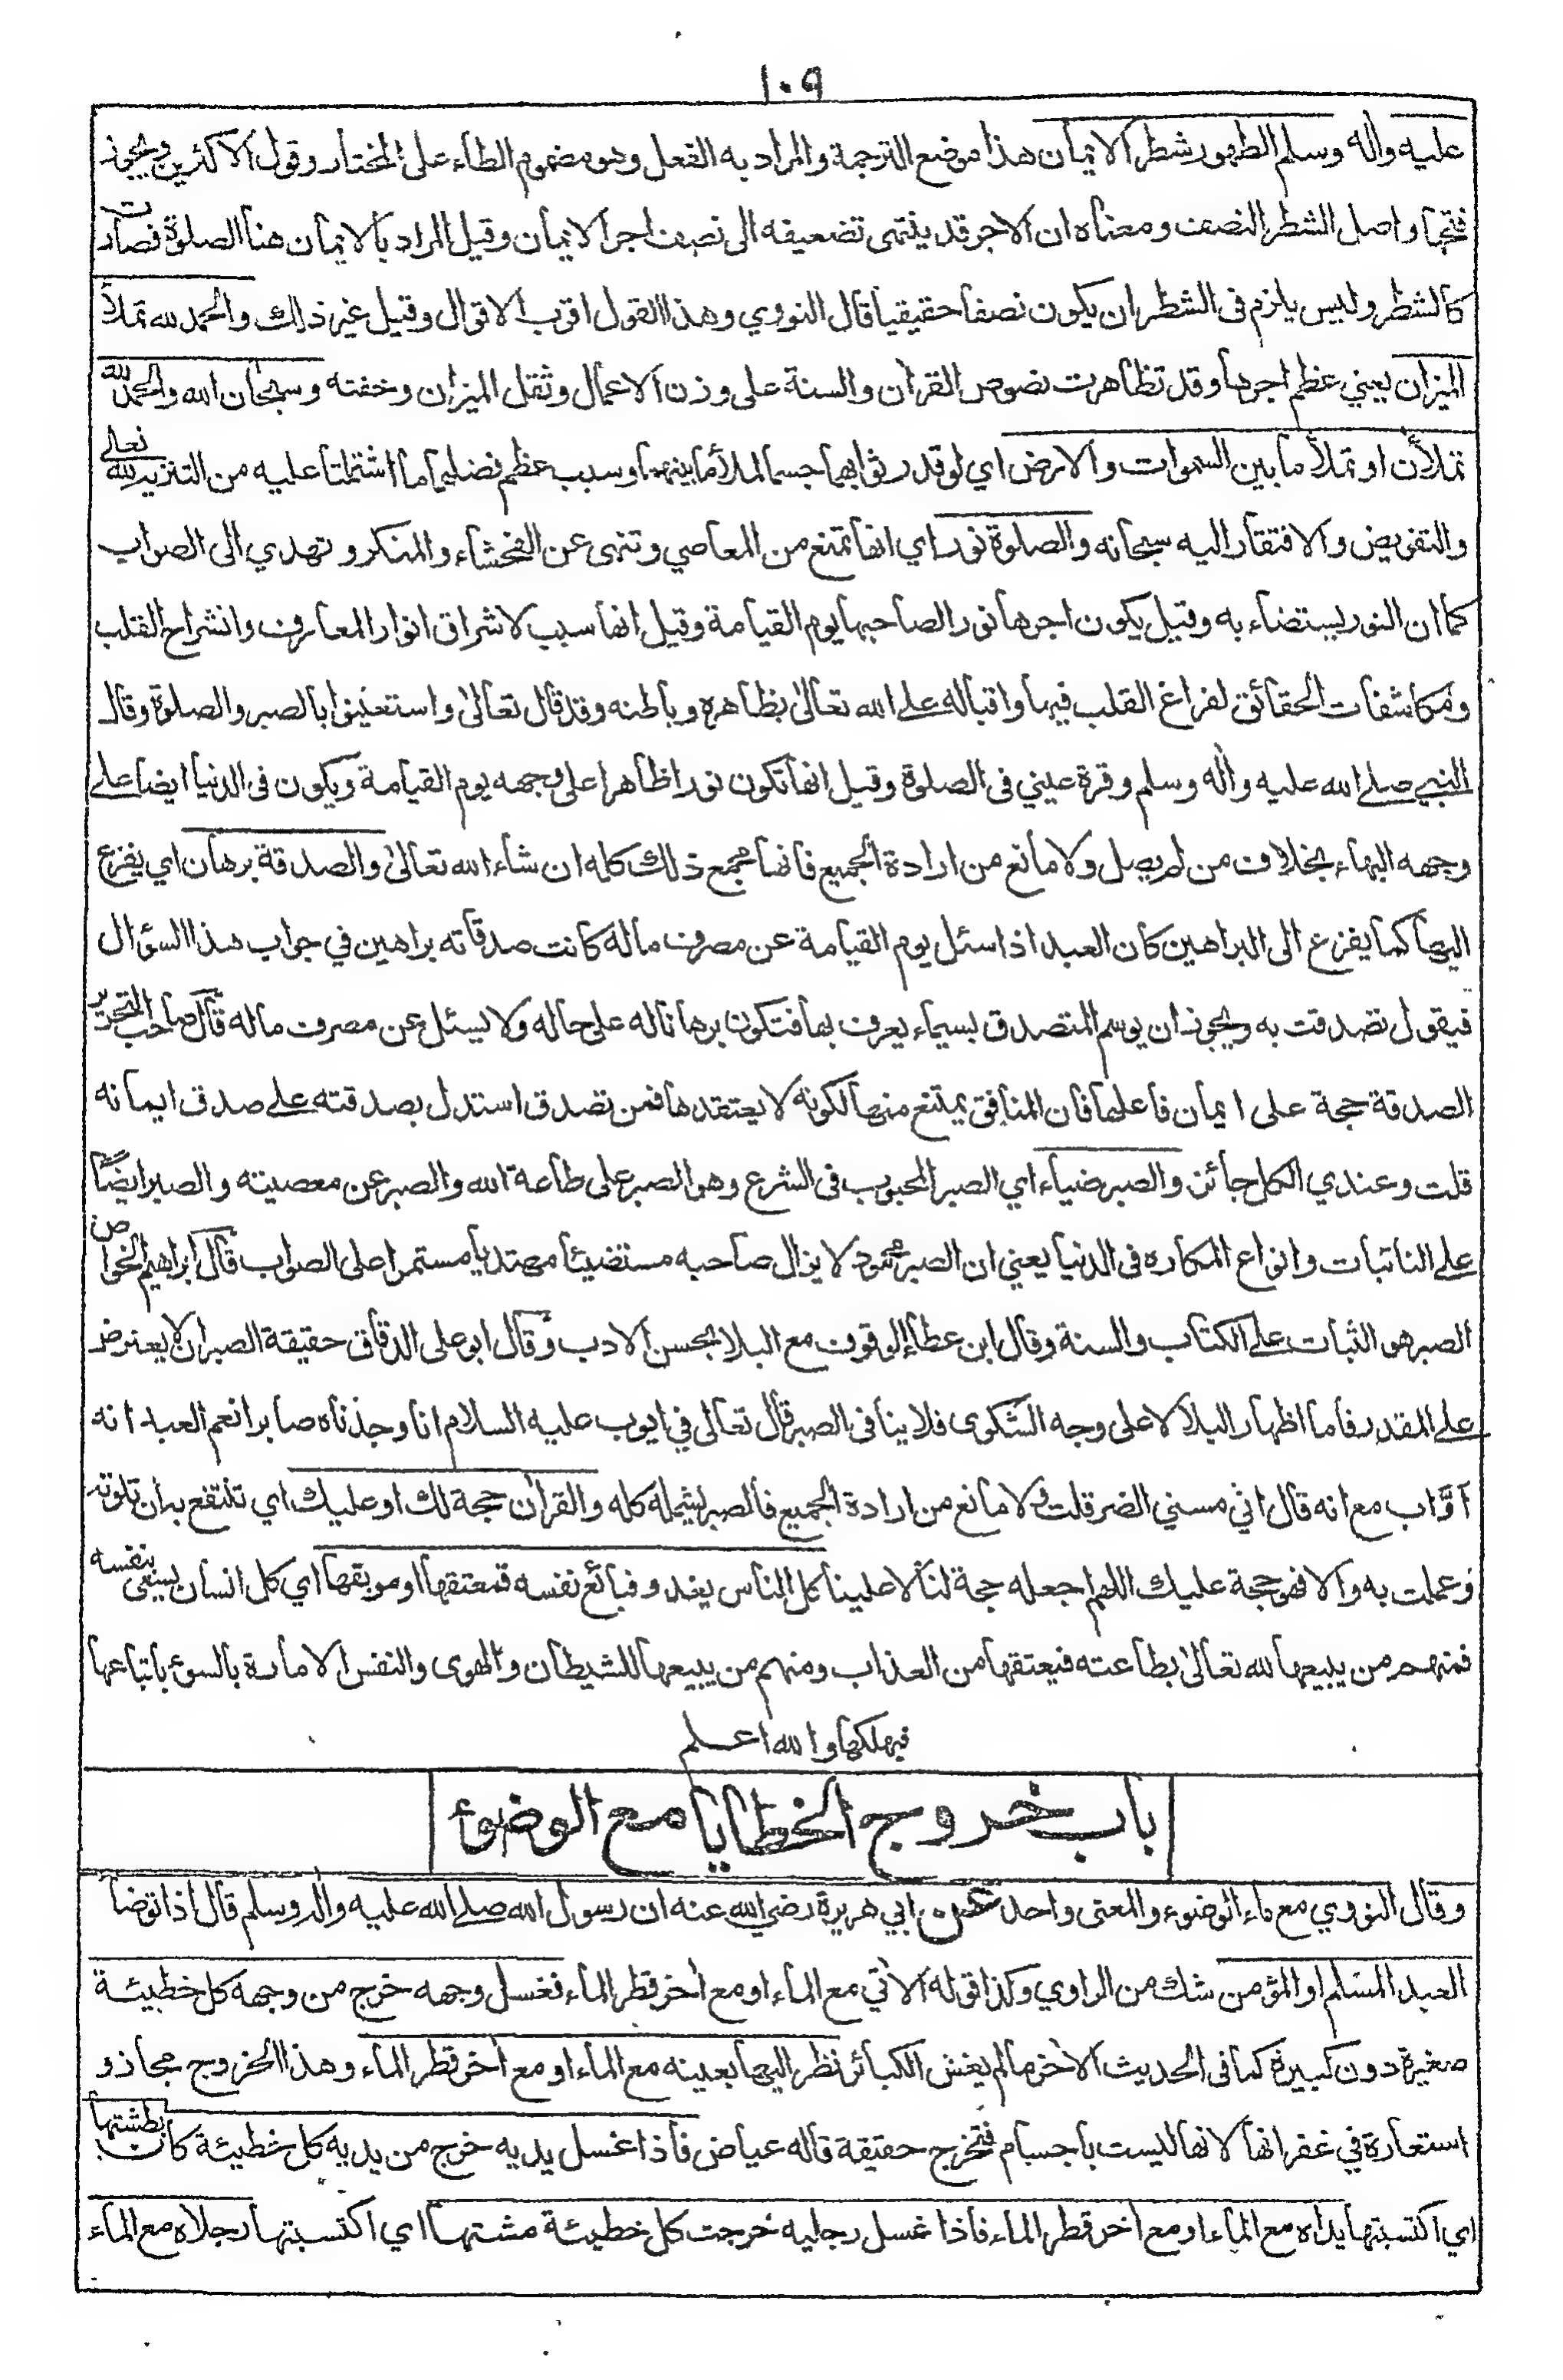 ١٠٩
عليه واٰله وسلم الطهور شطر الايمان هذا موضع الترجمة والمراد به الفعل وهو مضموم الطاء على المختار وقول الاكثرين ويجوز
فتحها واصل الشطر النصف ومعناه ان الاجر قد ينتهى تضعيفه الى نصف اجر الايمان وقيل المراد بالايمان هنا الصلوة فصارت
كالشطر وليس يلزم فى الشطر ان يكون نصفا حقيقيا قال النووي وهذا القول اقرب الاقوال وقيل غير ذلك والحمد لله تملأ
الميزان يعني عظم اجرها وقد تظاهرت نصوص القرآن والسنة على وزن الاعمال وثقل الميزان وخفته وسبحان الله والحمد لله
تملأن او تملأ ما بين السموات والارض اي لو قدر ثوابهما جسما لملأ ما بينهما وسبب عظم فضلهما ما اشتملتا عليه من التنزيه لله تعالى
والتفويض والافتقار اليه سبحانه والصلوة نور اي انها تمنع من المعاصي وتنهى عن الفحشاء والمنكر وتهدي الى الصواب
كما ان النور يستضاء به وقيل يكون اجرها نور الصاحبها يوم القيامة وقيل انها سبب لاشراق انوار المعارف وانشراح القلب
ومكاشفات الحقائق لفراغ القلب فيها واقباله على الله تعالىٰ بظاهره وباطنه وقد قال تعالىٰ واستعينوا بالصبر والصلوة وقال
النبي صلى الله عليه واٰله وسلم وقرة عيني فى الصلوة وقيل انها تكون نورا ظاهرا على وجهه يوم القيامة ويكون فى الدنيا ايضا على
وجهه البهاء بخلاف من لم يصل ولا مانع من ارادة الجميع فانها مجمع ذلك كله ان شاء الله تعالىٰ والصدقة برهان اي يفزع
اليها كما يفزع الى البراهين كان العبد اذا سئل يوم القيامة عن مصرف ماله كانت صدقاته براهين في جواب هذا السؤال
فيقول تصدقت به ويجوز ان يوسم المتصدق بسيماء يعرف بها فتكون برهانا له على حاله ولا يسئل عن مصرف ماله قال صاحب التحرير
الصدقة حجة على ايمان فاعلها فان المنافق يمتنع منها لكونه لا يعتقدها فمن تصدق استدل بصدقته على صدق ايمانه
قلت وعندي الكل جائز والصبر ضياء اي الصبر المحبوب فى الشرع وهو الصبر على طاعة الله والصبر عن معصيته والصبر ايضًا
على النائبات وانواع المكاره فى الدنيا يعني ان الصبر محمود لا يزال صاحبه مستضيئا مهتديا مستمرا على الصواب قال ابراهيم الخواص
الصبر هو الثبات على الكتاب والسنة وقال ابن عطاء الوقوف مع البلا بحسن الادب وقال ابو على الدقاق حقيقة الصبر ان لا يعترض
على المقدر فاما اظهار البلا لا على وجه الشكوى فلا ينا فى الصبر قال تعالى في ايوب عليه السلام انا وجدناه صابرا نعم العبد انه
اوّاب مع انه قال اني مسني الضر قلت ولا مانع من ارادة الجميع فالصبر يشمله كله والقراٰن حجة لك او عليك اي تنتفع به ان تلوته
وعملت به والا فهو حجة عليك اللهم اجعله حجة لنا لا علينا كل الناس يغدو فبائع نفسه فمعتقها او موبقها اي كل انسان يسعى بنفسه
فمنهم من يبيعها لله تعالىٰ بطاعته فيعتقها من العذاب ومنهم من يبيعها للشيطان والهوى والنفس الامارة بالسوء باتباعها
فيهلكها والله اعلم
باب خروج الخطايا مع الوضوء
وقال النووي مع ماء الوضوء والمعنى واحد عن ابي هريرة رضي الله عنه ان رسول الله صلى الله عليه واٰله وسلم قال اذا توضأ
العبد المسلم او المؤمن شك من الراوي وكذا قوله الاٰتي مع الماء او مع اٰخر قطر الماء فغسل وجهه خرج من وجهه كل خطيئة
صغيرة دون كبيرة كما فى الحديث الاٰخر ما لم يغش الكبائر نظر اليها بعينه مع الماء او مع اٰخر قطر الماء وهذا الخروج مجاز و
استعارة في غفرانها لانها ليست باجسام فتخرج حقيقة قاله عياض فاذا غسل يديه خرج من يديه كل خطيئة كان بطشتها
اي اكتسبتها يداه مع الماء او مع اٰخر قطر الماء فاذا غسل رجليه خرجت كل خطيئة مشتها اي اكتسبتها رجلاه مع الماء